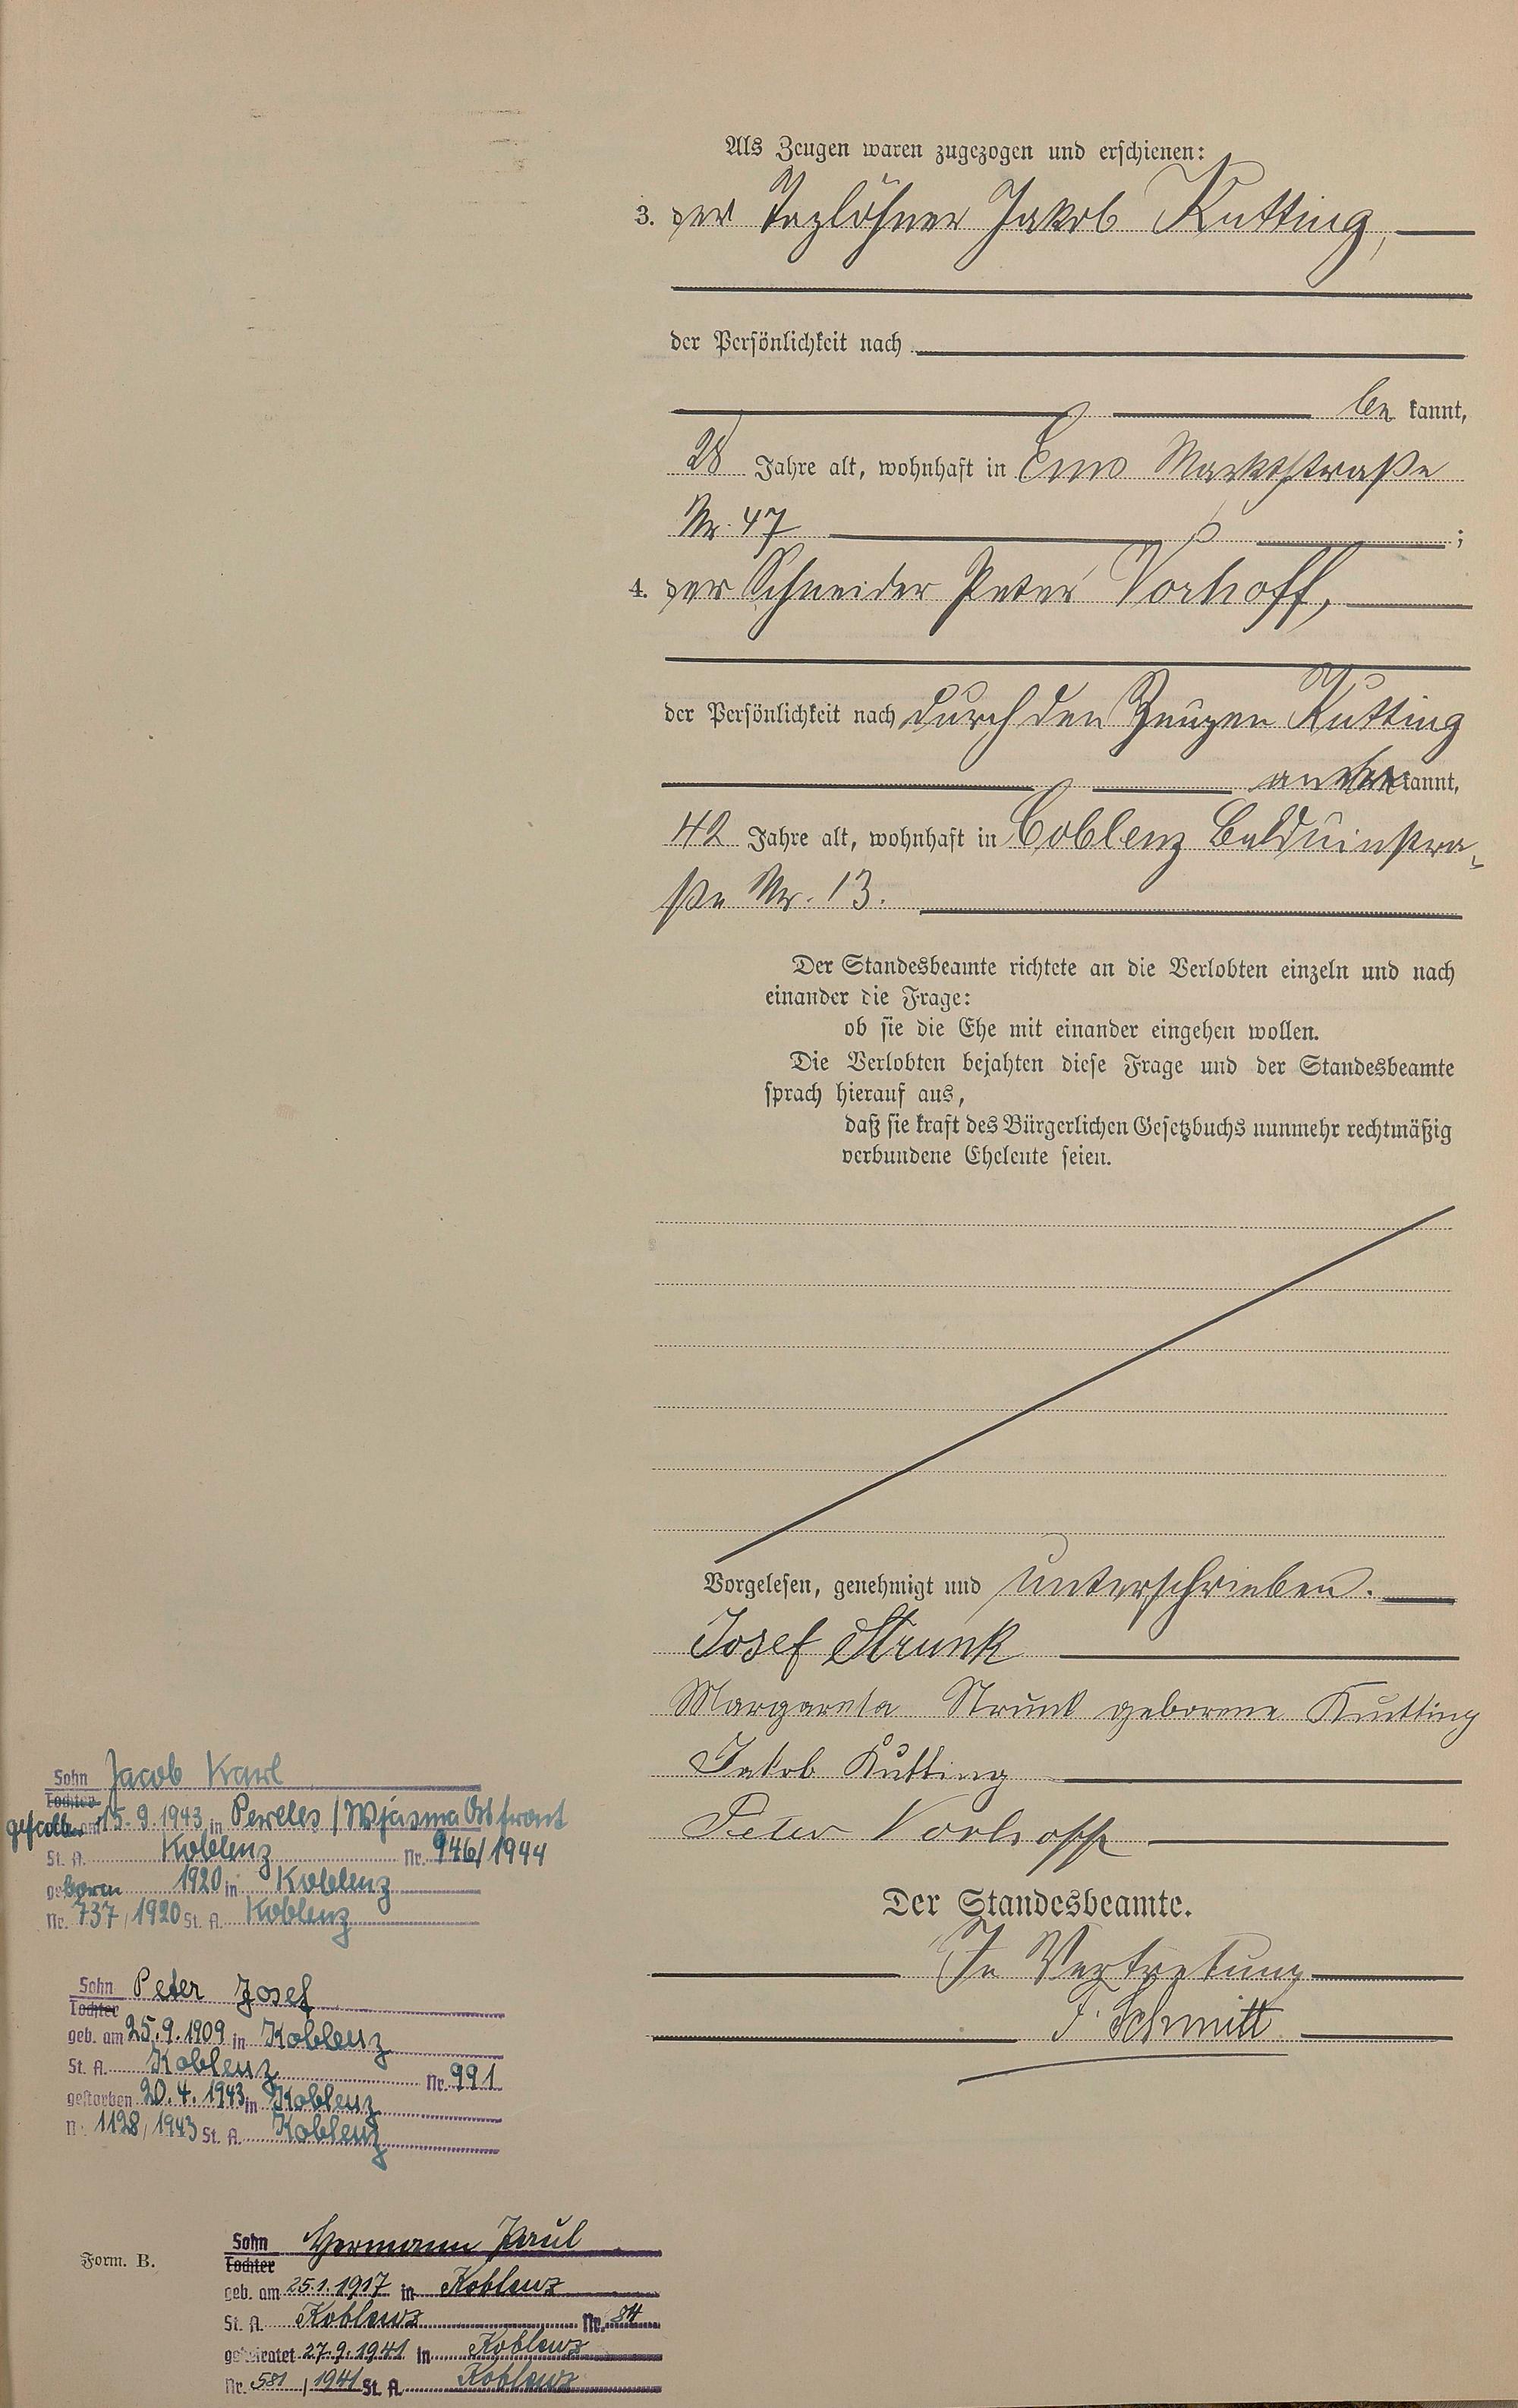 Als Zeugen waren zugezogen und erschienen:
3. der Taglöhner Jakob Kutting,
der Persönlichkeit nach
be kannt,
28 Jahre alt, wohnhaft in Ems Marktstraße
Nr. 47 ;
4. der Schneider Peter Vorhoff,
der Persönlichkeit nach durch den Zeugen Kutting
aner kannt,
42 Jahre alt, wohnhaft in Coblenz Balduinstra-
ße Nr. 13.
Der Standesbeamte richtete an die Verlobten einzeln und nach
einander die Frage:
ob sie die Ehe mit einander eingehen wollen.
Die Verlobten bejahten diese Frage und der Standesbeamte
sprach hierauf aus,
daß sie kraft des Bürgerlichen Gesetzbuchs nunmehr rechtmäßig
verbundene Eheleute seien.
Vorgelesen, genehmigt und unterschrieben.
Josef Strunk
Margareta Strunk geborene Kutting
Jakob Kutting
Peter Vorhoff
Der Standesbeamte.
In Vertretung
F. Schmitt
Sohn Jacob Karl
Tochter
gefallen am 15.9.1943 in Perelles / Wjasma Ostfront
St. A. Koblenz Nr. 946/1944
geboren 1920 in Koblenz
Nr. 737/1920 St. A. Koblenz
Sohn Peter Josef
Tochter
geb. am 25.9.1909 in Koblenz
St. A. Koblenz Nr. 991
gestorben 20.4.1943 in Koblenz
Nr. 1128/1943 St. A. Koblenz
Form. B.
Sohn Hermann Paul
Tochter
geb. am 25.1.1917 in Koblenz
St. A. Koblenz Nr. 84
geheiratet 27.9.1941 in Koblenz
Nr. 581 / 1941 St. A. Koblenz